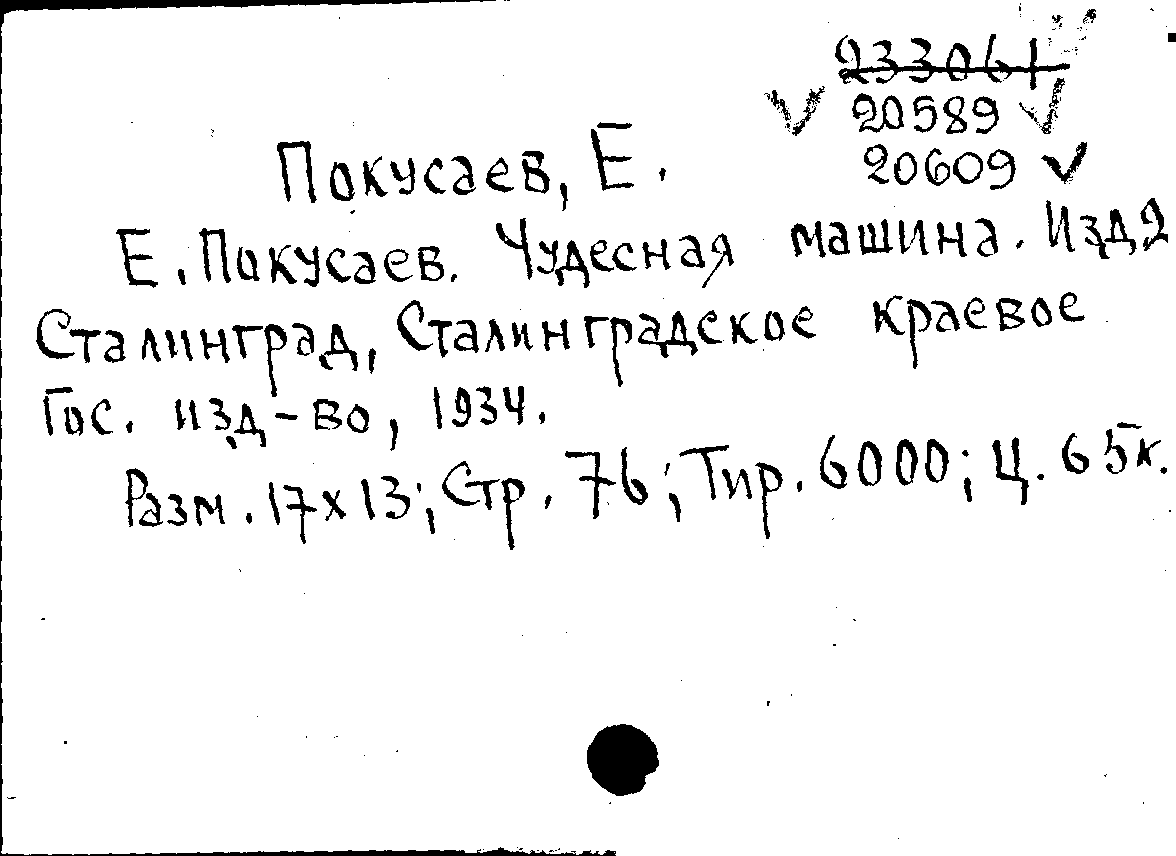 233061
20589
20609
Покусаев, Е.
Е. Покусаев. Чудесная машина. Изд. 2
Сталинград, Сталинградское краевое
Гос. изд-во, 1934.
Разм. 17х13; Стр. 76; Тир. 6000; Ц. 65к.